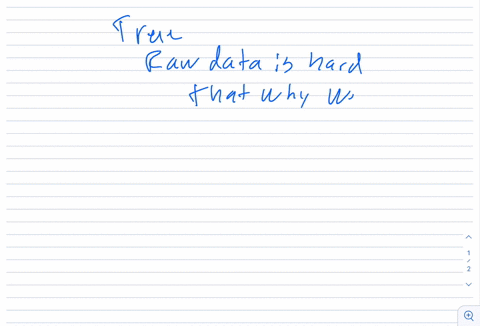 True
Raw data is hard
that why w
1
/
2